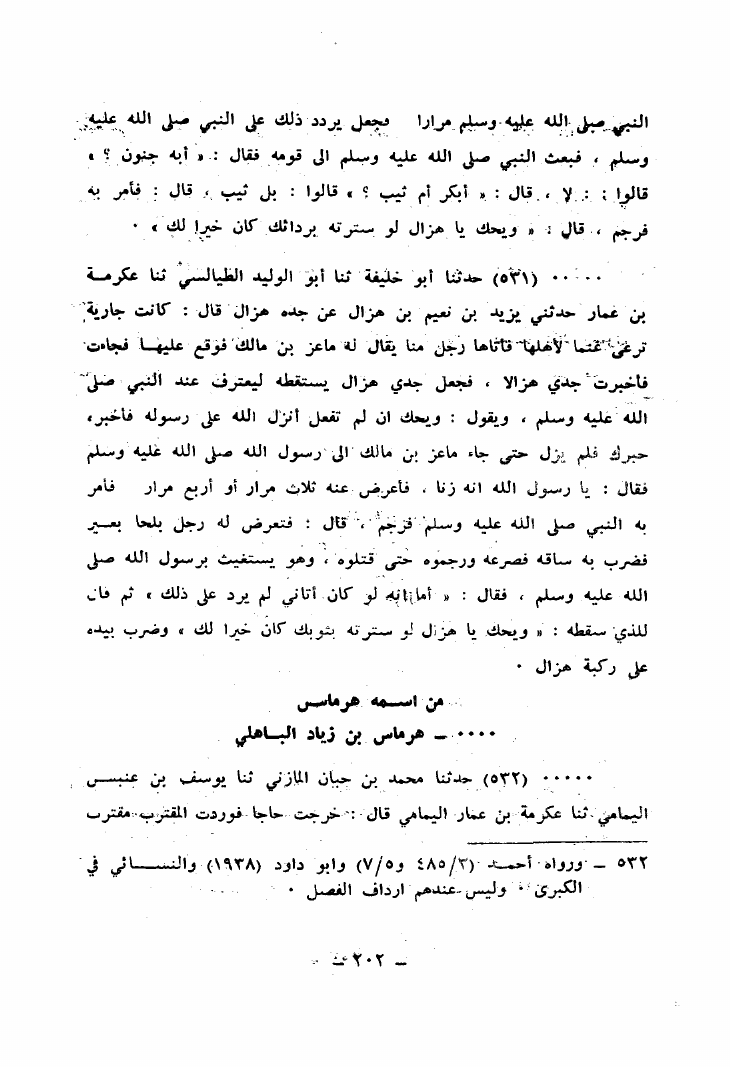 النبي صلى الله عليه وسلم مرارا فجعل يردد ذلك على النبي صلى الله عليه
وسلم ، فبعث النبي صلى الله عليه وسلم الى قومه فقال : « أبه جنون ؟ »
قالوا : لا ، قال : « أبكر أم ثيب ؟ » قالوا : بل ثيب ، قال : فأمر به
فرجم ، قال : « ويحك يا هزال لو سترته بردائك كان خيرا لك » ٠
٠٠٠٠٠ (٥٣١) حدثنا أبو خليفة ثنا أبو الوليد الطيالسي ثنا عكرمة
بن عمار حدثني يزيد بن نعيم بن هزال عن جده هزال قال : كانت جارية
ترعى غنما لأهلها فأتاها رجل منا يقال له ماعز بن مالك فوقع عليها فجاءت
فأخبرت جدي هزالا ، فجعل جدي هزال يستقطه ليعترف عند النبي صلى
الله عليه وسلم ، ويقول : ويحك ان لم تفعل أنزل الله على رسوله فأخبره
خبرك فلم يزل حتى جاء ماعز بن مالك الى رسول الله صلى الله عليه وسلم
فقال : يا رسول الله انه زنا ، فأعرض عنه ثلاث مرار أو أربع مرار فأمر
به النبي صلى الله عليه وسلم فرجم ، قال : فتعرض له رجل بلحا بعير
فضرب به ساقه فصرعه ورجموه حتى قتلوه ، وهو يستغيث برسول الله صلى
الله عليه وسلم ، فقال : « أما انه لو كان أتاني لم يرد على ذلك » ثم قال
للذي سقطه : « ويحك يا هزال لو سترته بثوبك كان خيرا لك » وضرب بيده
على ركبة هزال ٠
من اسمه هرماس
٠٠٠٠ ــ هرماس بن زياد الباهلي
٠٠٠٠٠ (٥٣٢) حدثنا محمد بن حبان المازني ثنا يوسف بن عنبس
اليمامي ثنا عكرمة بن عمار اليمامي قال : خرجت حاجا فوردت المقترب مقترب
٥٣٢ ــ ورواه أحمد (٤٨٥/٣ و٧/٥) وابو داود (١٩٣٨) والنسائي في
الكبرى ٠ وليس عندهم ارداف الفصل ٠
ــ ٢٠٢ ــ